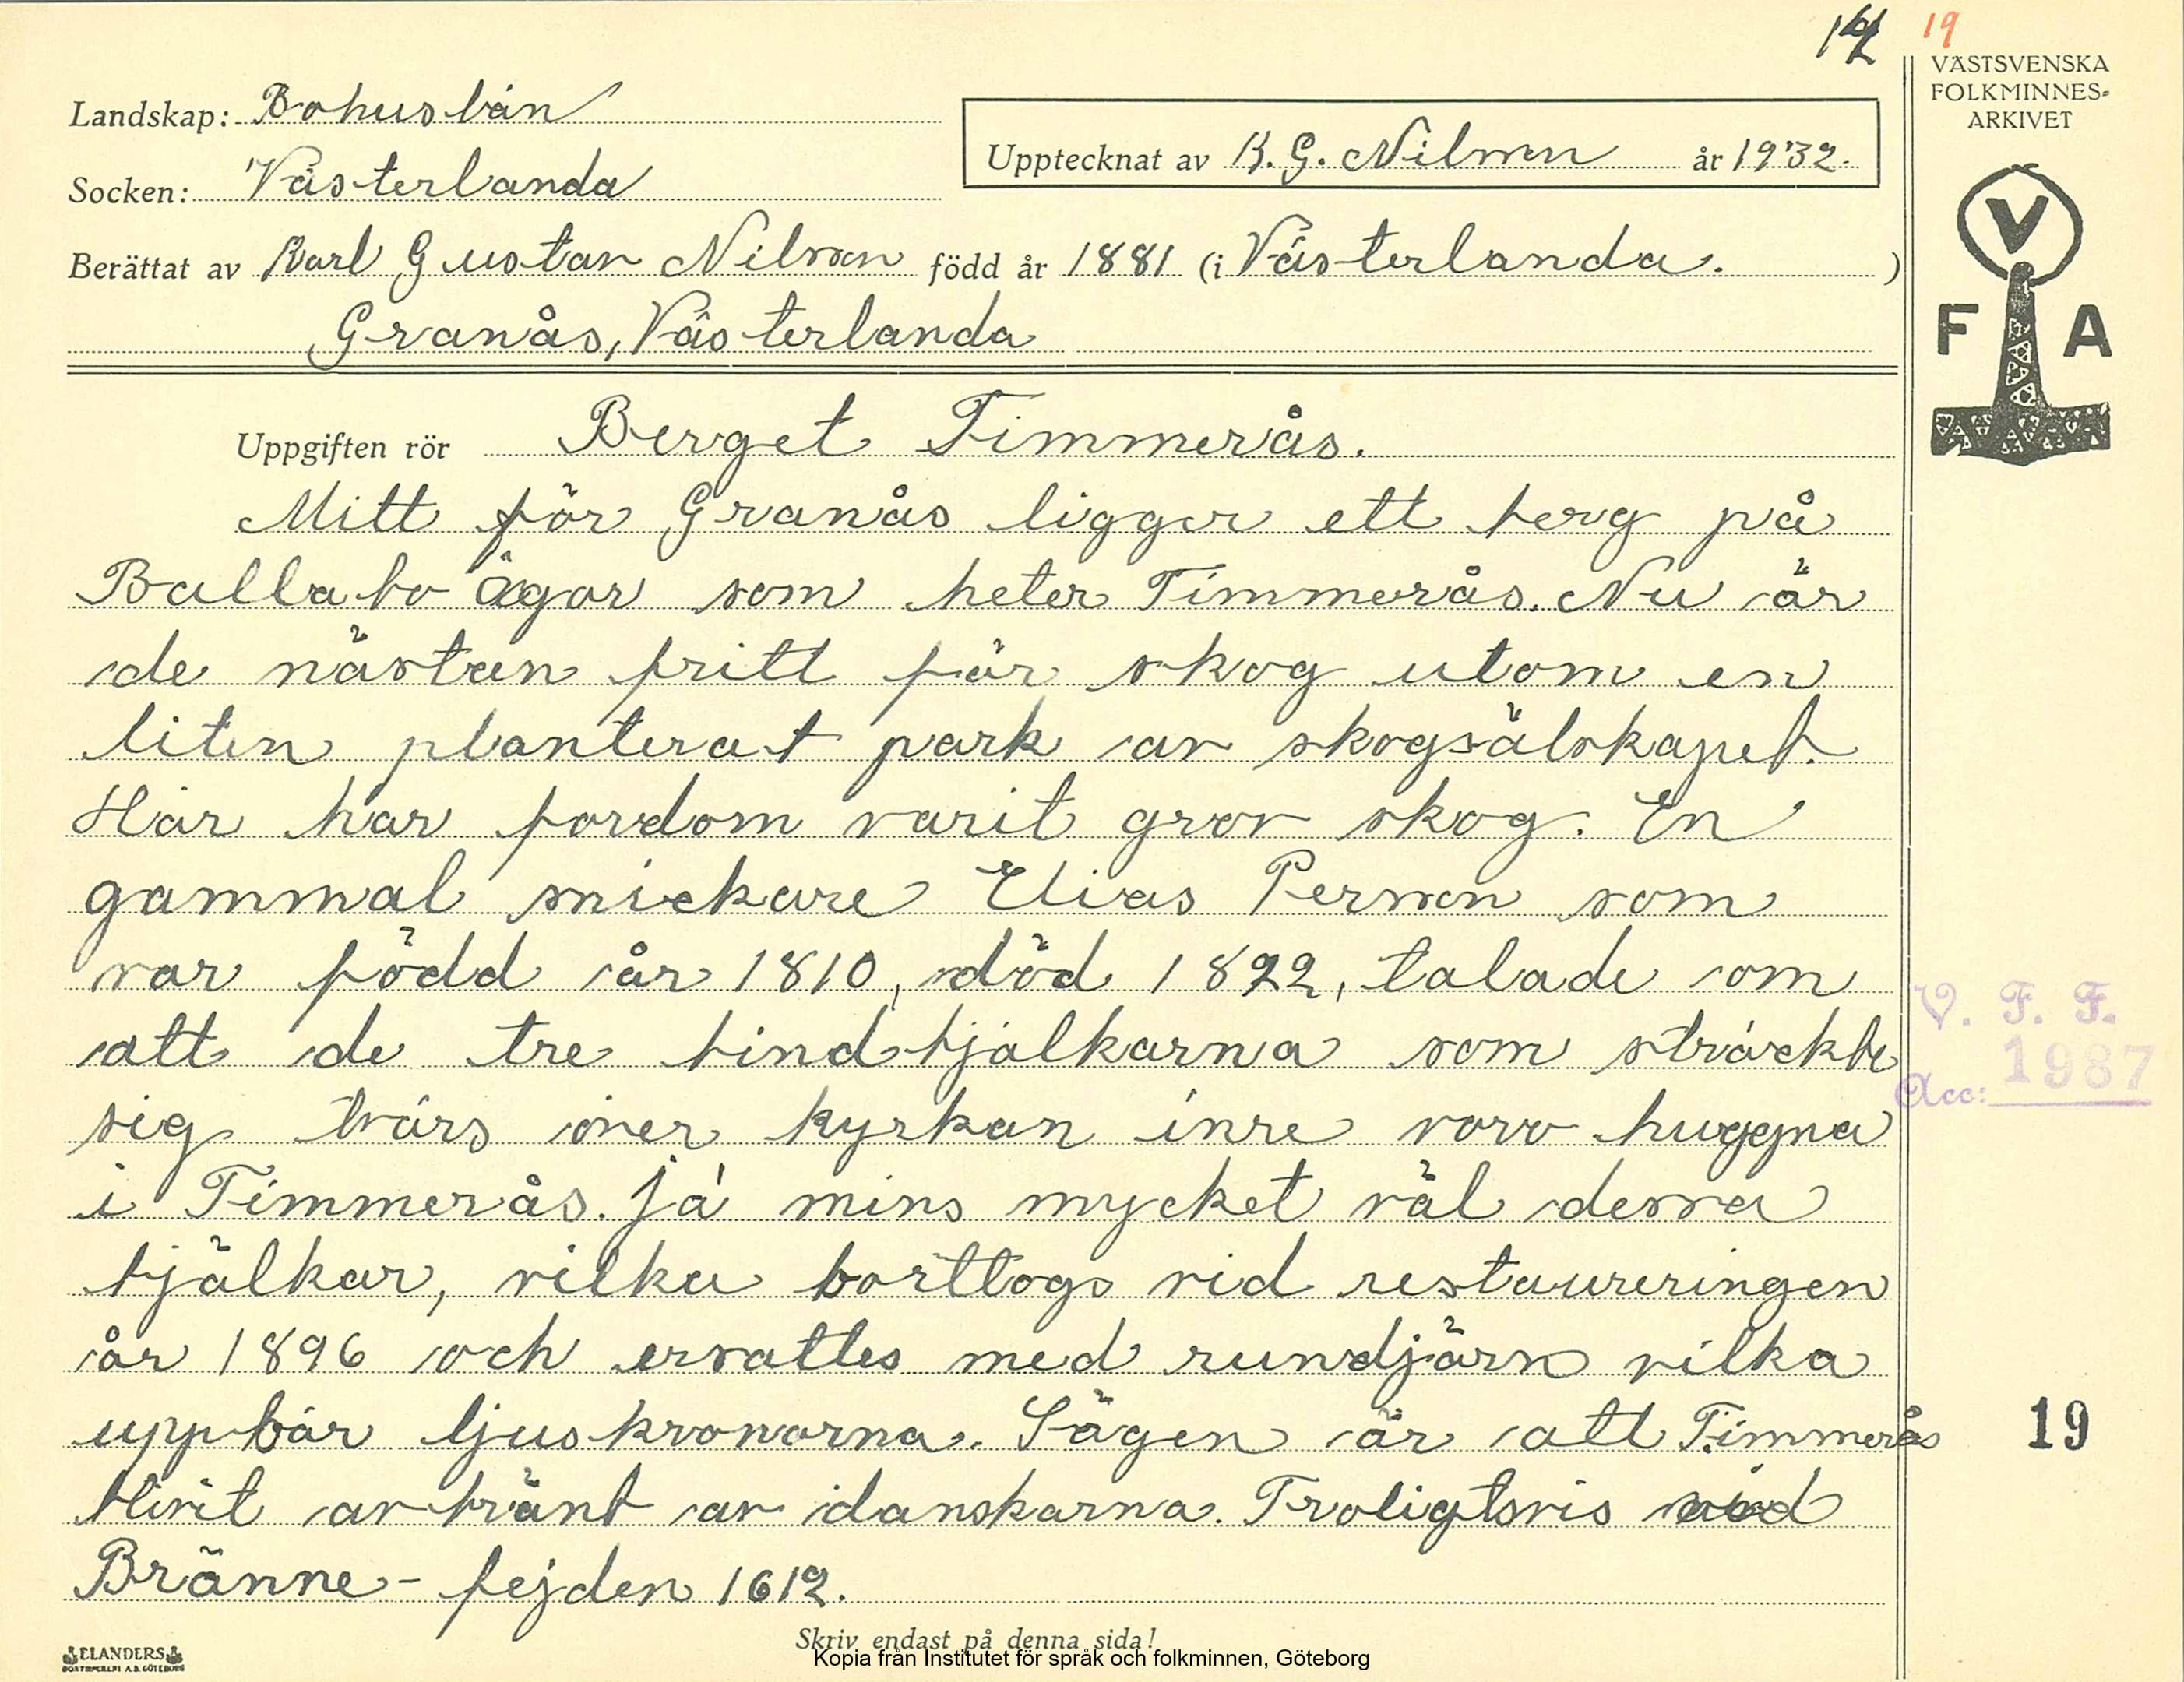 19
VÄSTSVENSKA
FOLKMINNES-
ARKIVET
Landskap: Bohuslän
Upptecknat av K. G. Nilsson år 1932.
Socken: Västerlanda
Berättat av Karl Gustav Nilsson född år 1881 (i Västerlanda. )
Granås, Västerlanda
V
F A
Uppgiften rör Berget Timmerås.
Mitt för Granås ligger ett berg på
Ballabo ägor som heter Timmerås. Nu är
de nästan fritt för skog utom en
liten planterat park av skogsälskapet.
Här har fordom varit grov skog. En
gammal snickare Elias Persson som
var född år 1810, död 1892, talade om
att de tre bindbjälkarna som sträckte
sig tvärs över kyrkan inre voro huggna
i Timmerås. Ja mins mycket väl dessa
bjälkar, vilka borttogs vid restaureringen
år 1896 och ersattes med rundjärn vilka
uppbär ljuskronorna. Sägen är att Timmerås
blivit avbränt av danskarna. Troligtsvis vid
Bränne-fejden 1612.
V. F. F.
Acc: 1987
19
Skriv endast på denna sida!
ELANDERS
BOKTRYCKERI A.B. GÖTEBORG
Kopia från Institutet för språk och folkminnen, Göteborg